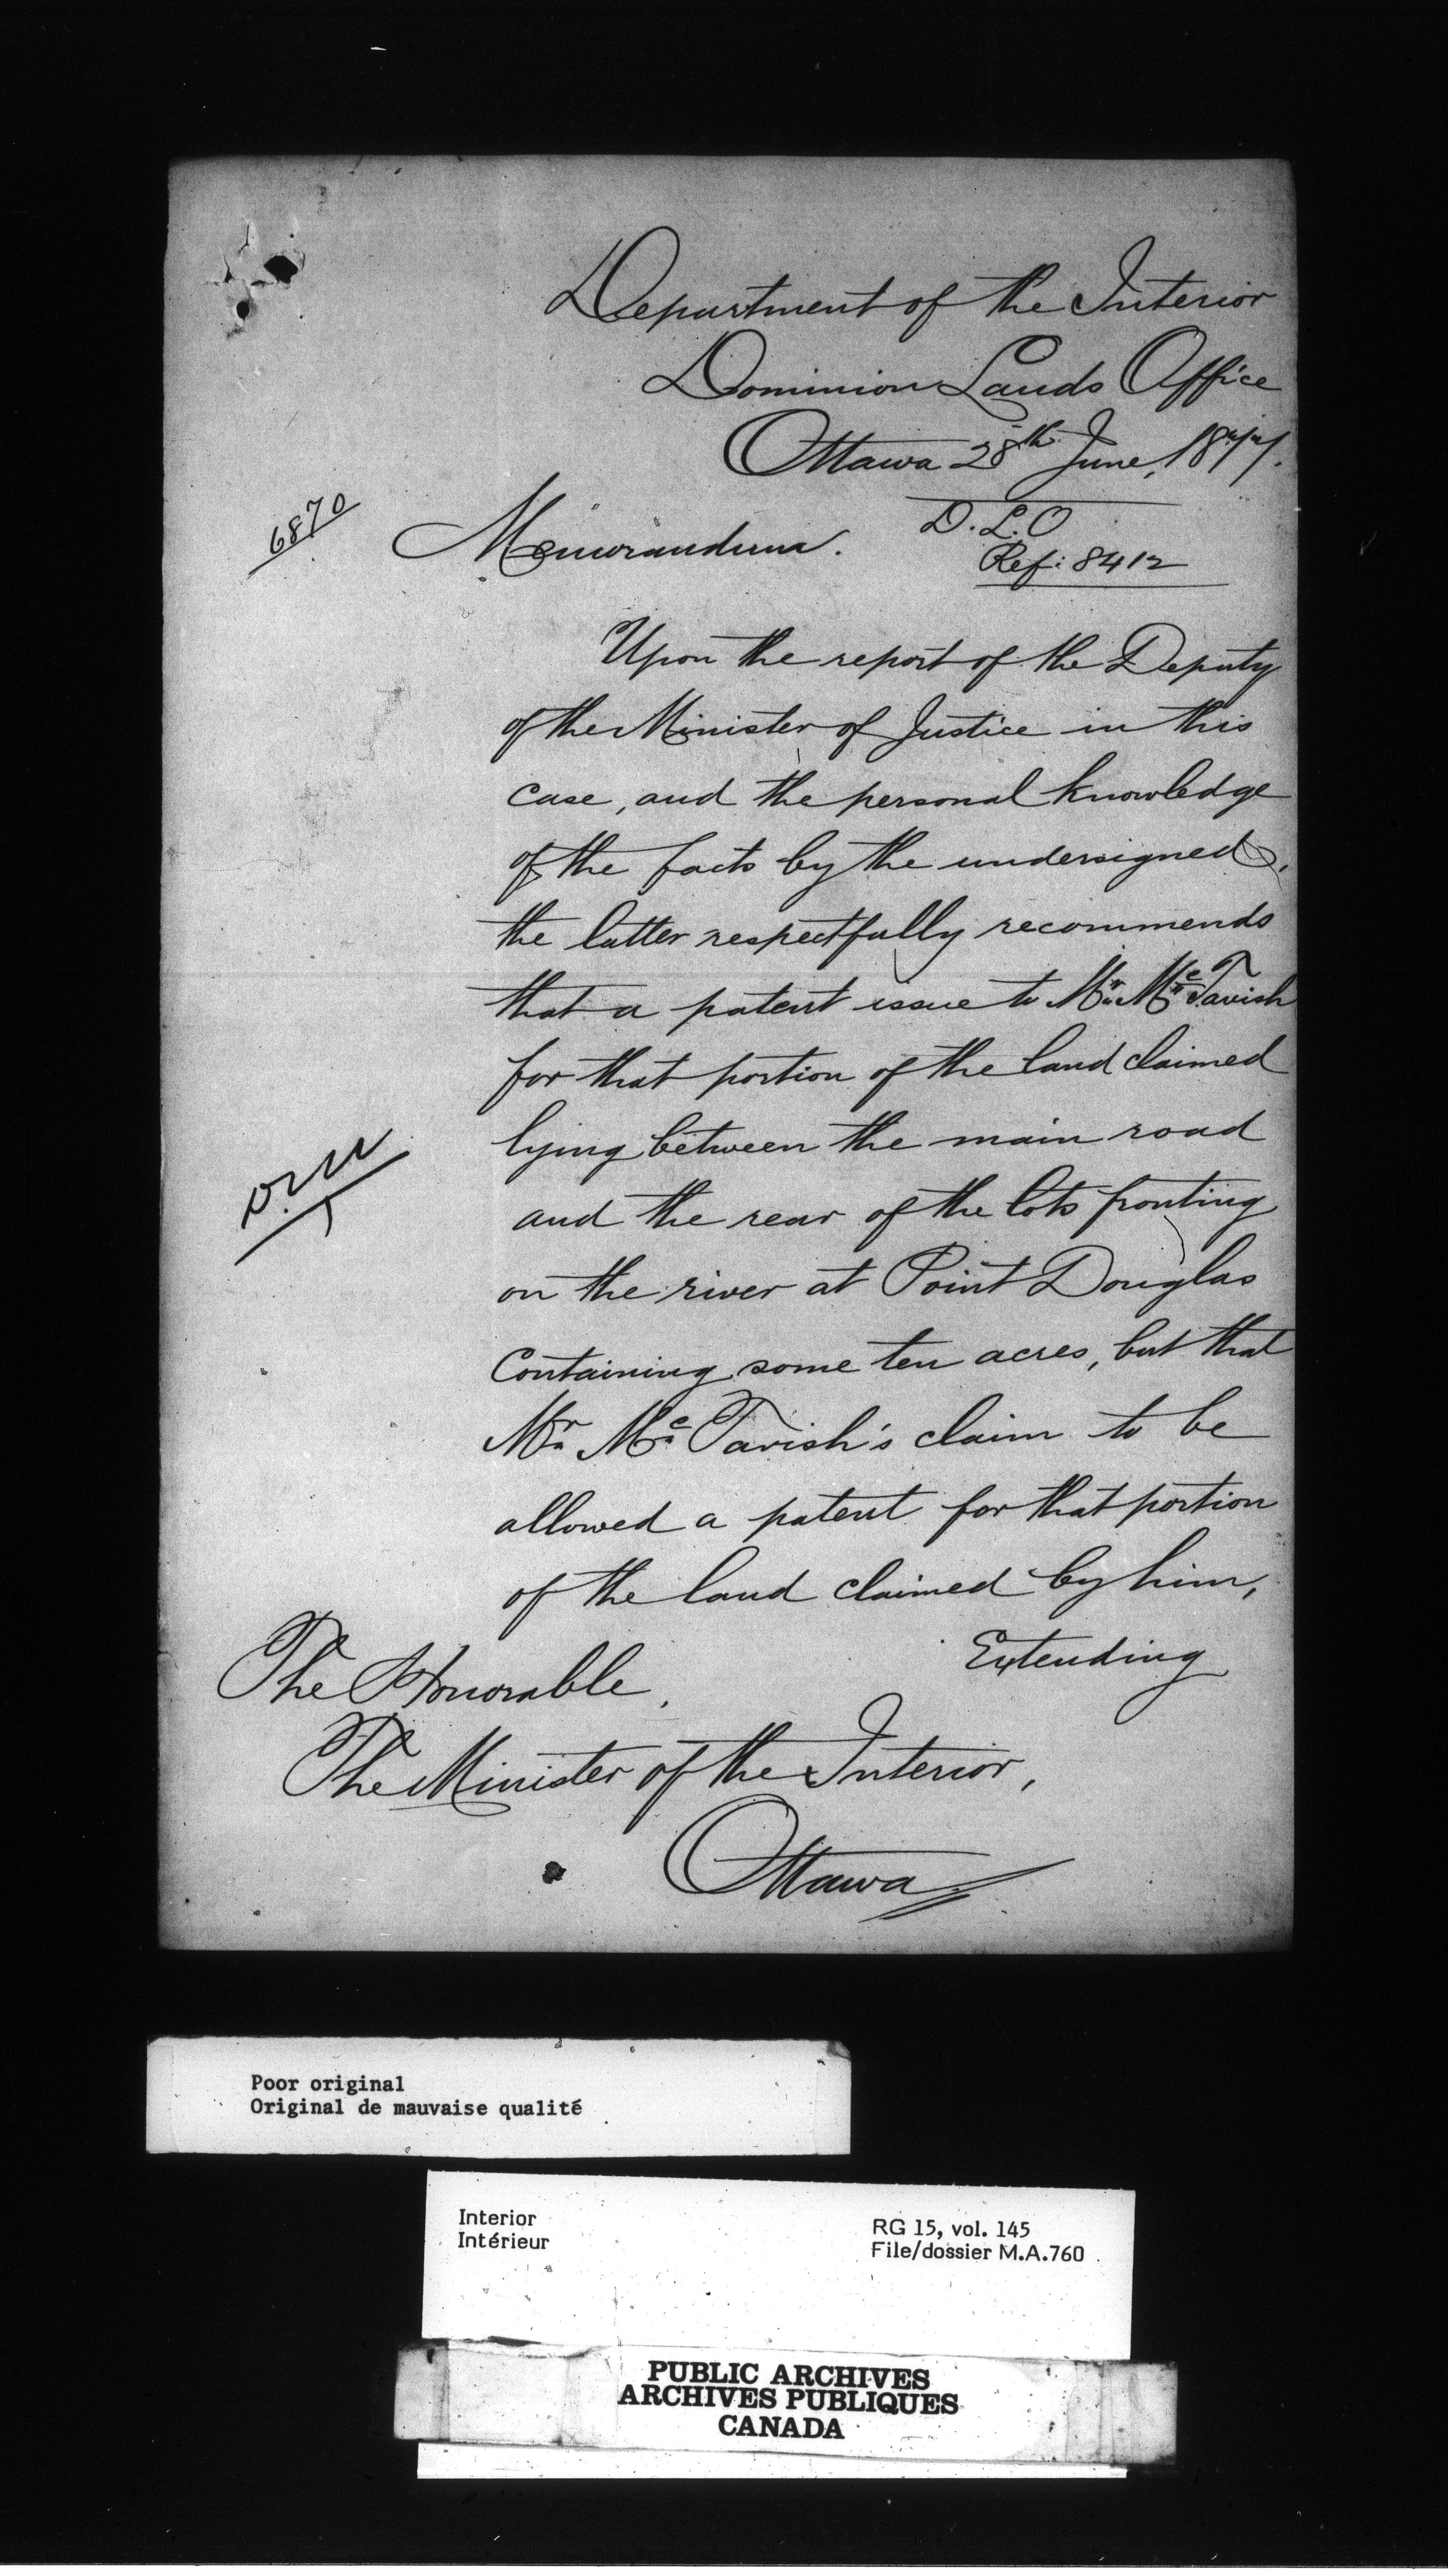 Department of the Interior
Dominion Lands Office
Ottawa 28th June, 1877.
6870
Memorandum.
D. L. O
Ref: 8412
Upon the report of the Deputy
of the Minister of Justice in this
case, and the personal knowledge
of the facts by the undersigned,
the latter respectfully recommends
that a patent issue to Mr. McTavish
for that portion of the land claimed
lying between the main road
and the rear of the lots fronting
on the river at Point Douglas
Containing some ten acres, but that
Mr McTavish's claim to be
allowed a patent for that portion
of the land claimed by him,
Extending
The Honorable,
The Minister of the Interior,
Ottawa
Poor original
Original de mauvaise qualité
Interior
Intérieur
RG 15, vol. 145
File/dossier M.A.760
PUBLIC ARCHIVES
ARCHIVES PUBLIQUES
CANADA